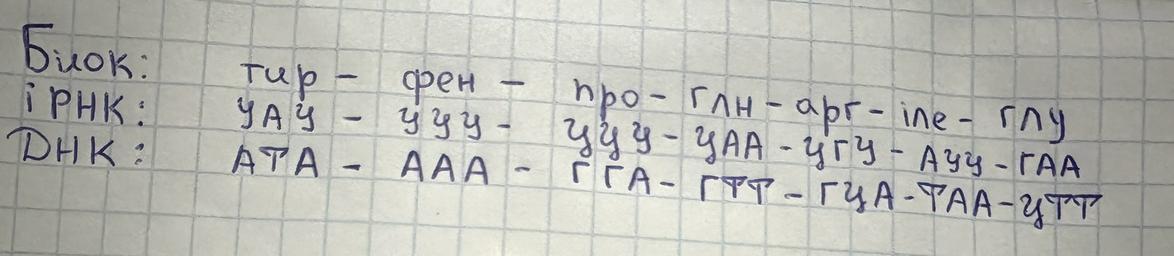 Білок: тир - фен - про - глн - арг - іле - глу
іРНК: УАУ - УУУ - ЦЦУ - ЦАА - ЦГУ - АУУ - ГАА
ДНК: АТА - ААА - ГГА - ГТТ - ГЦА - ТАА - ЦТТ